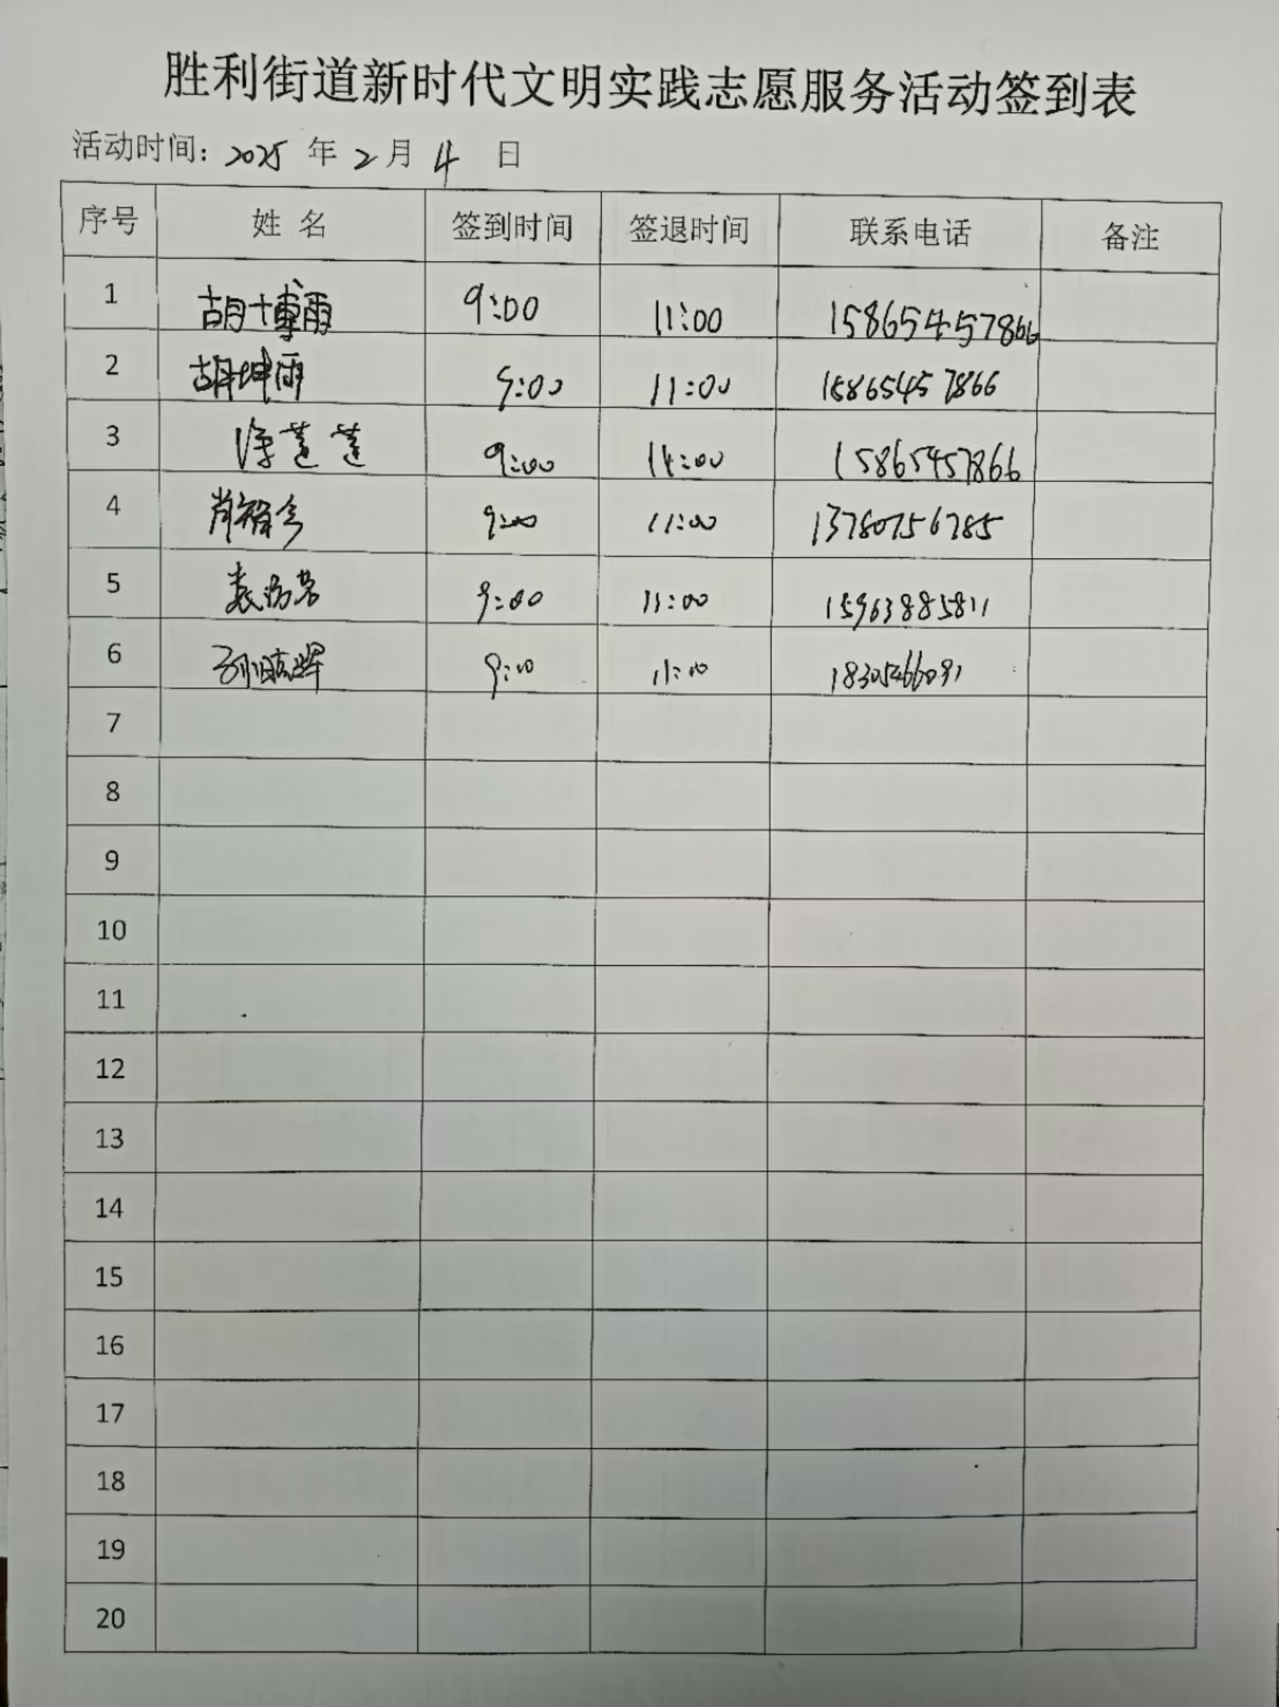 胜利街道新时代文明实践志愿服务活动签到表
活动时间: 2025 年 2 月 4 日
序号 姓 名 签到时间 签退时间 联系电话 备注
1 胡博雨 9:00 11:00 15865457866
2 胡坤雨 9:00 11:00 15865457866
3 莲莲 9:00 11:00 15865457866
4 9:00 11:00 13780756785
5 9:00 11:00 15963885811
6 9:00 11:00 18305466091
7
8
9
10
11
12
13
14
15
16
17
18
19
20